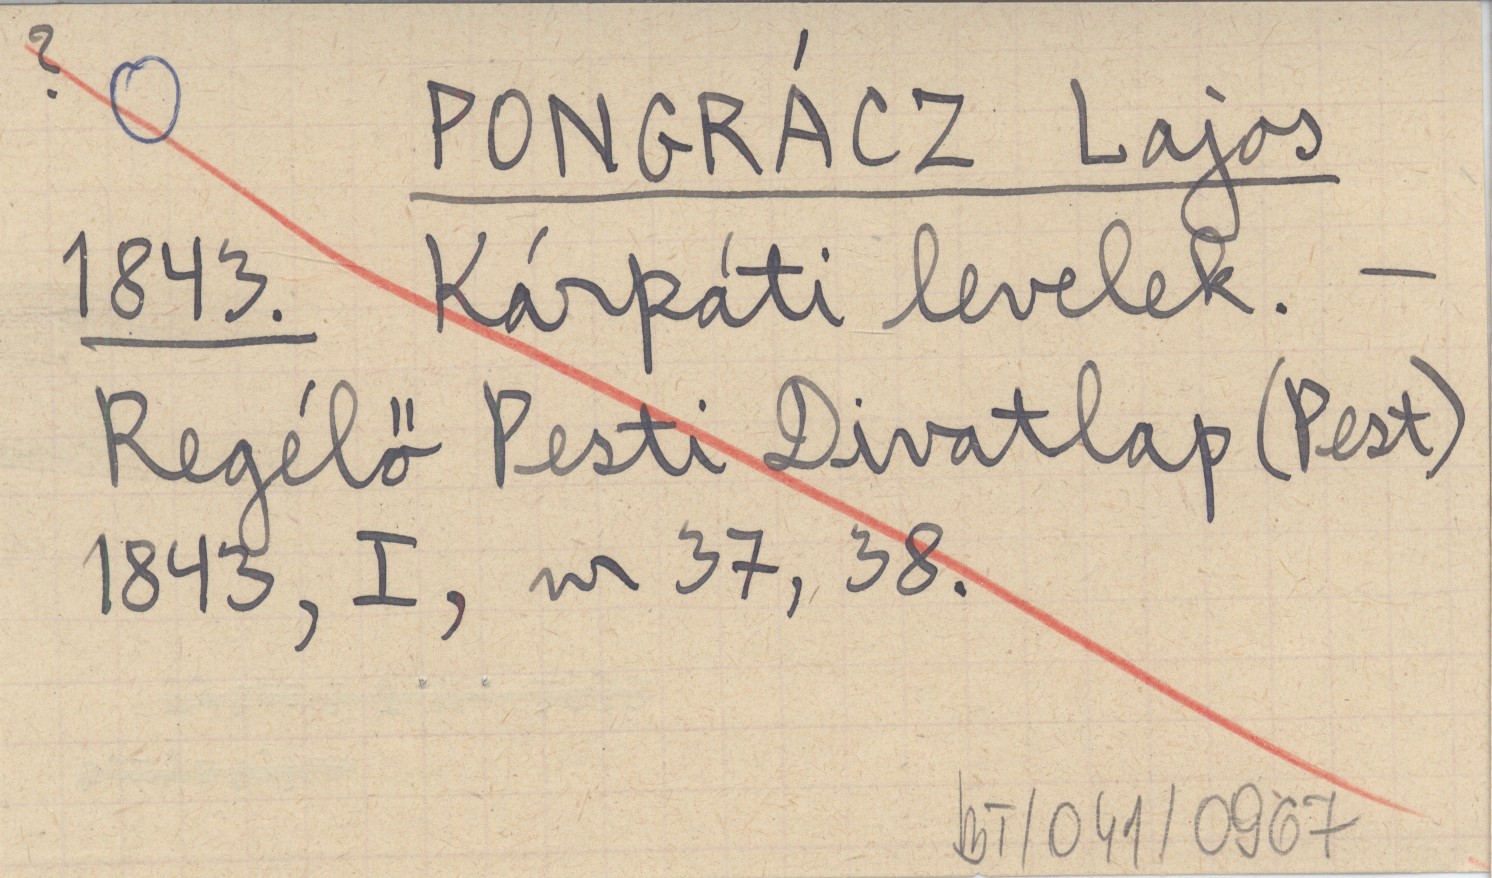 ?
PONGRÁCZ Lajos
1843. Kárpáti levelek. —
Regélő Pesti Divatlap (Pest)
1843, I, nr 37, 38.
BT/041/0967